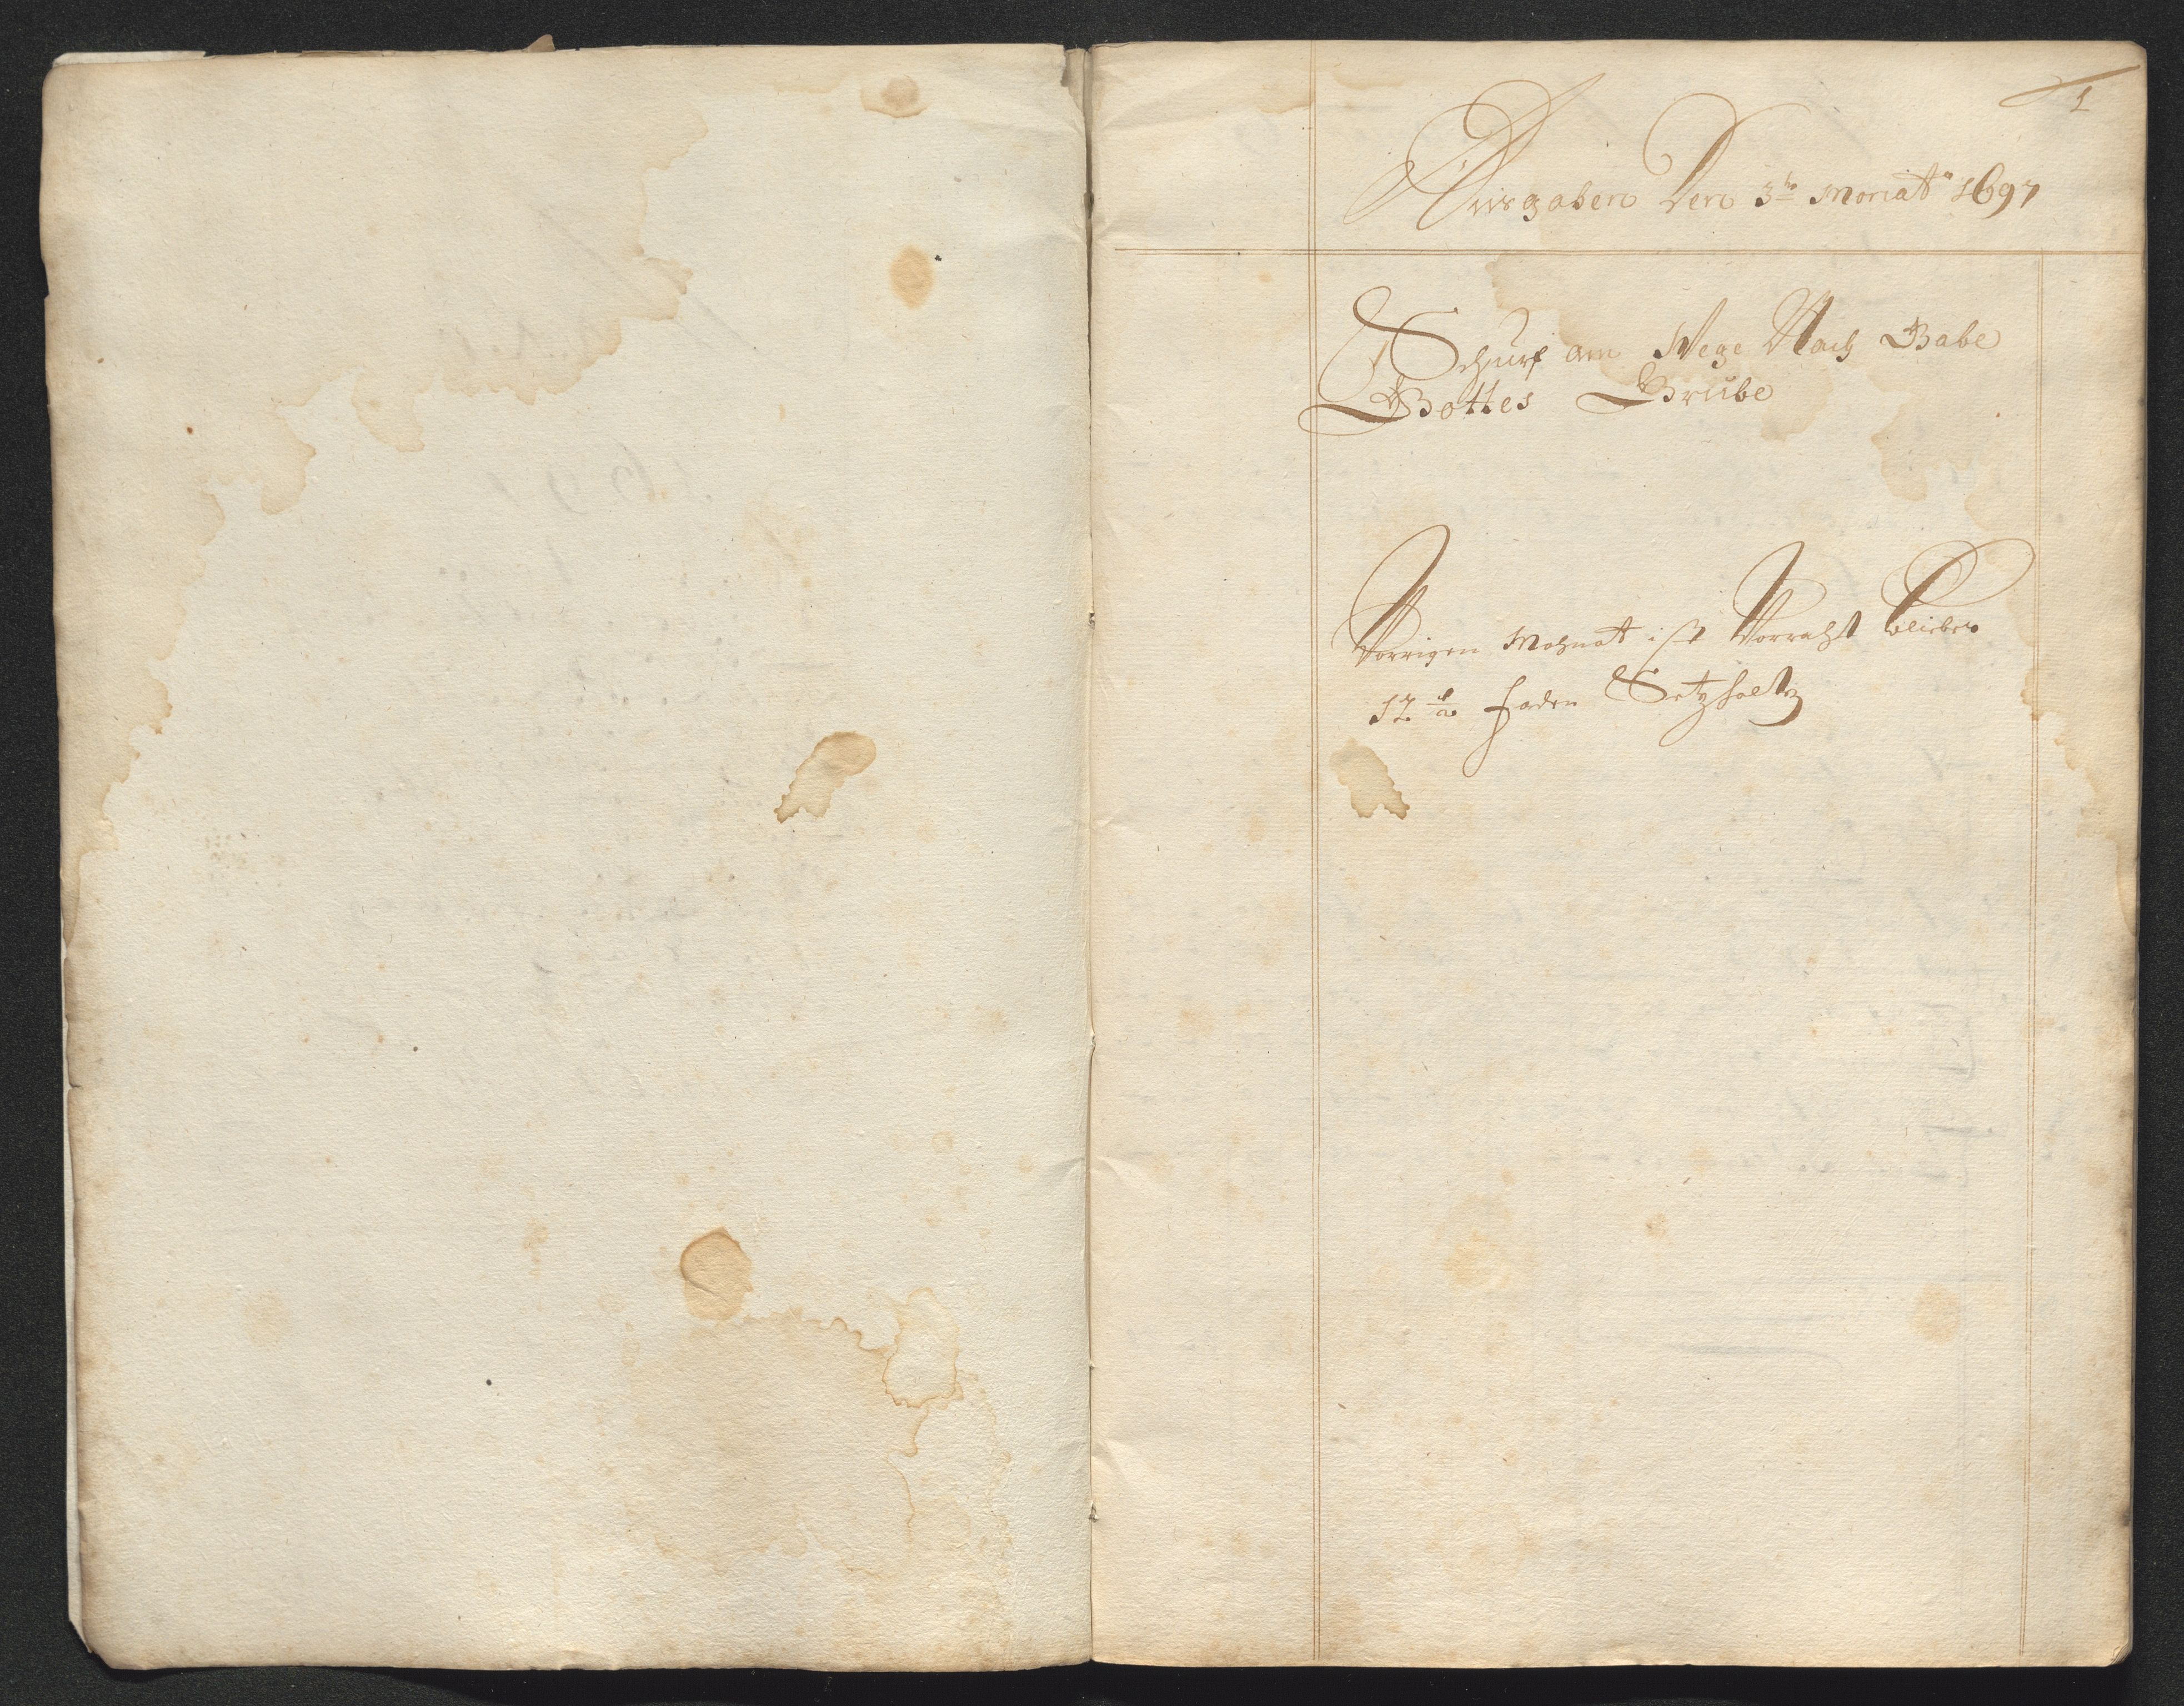 1
Ausgaben Den 3te Monat 1697
Schurf am Wege Nach Gabe
Gottes Grube
Vorrigen Mohnat ist Vorraht blieben
12 1/2 faden Setzholtz